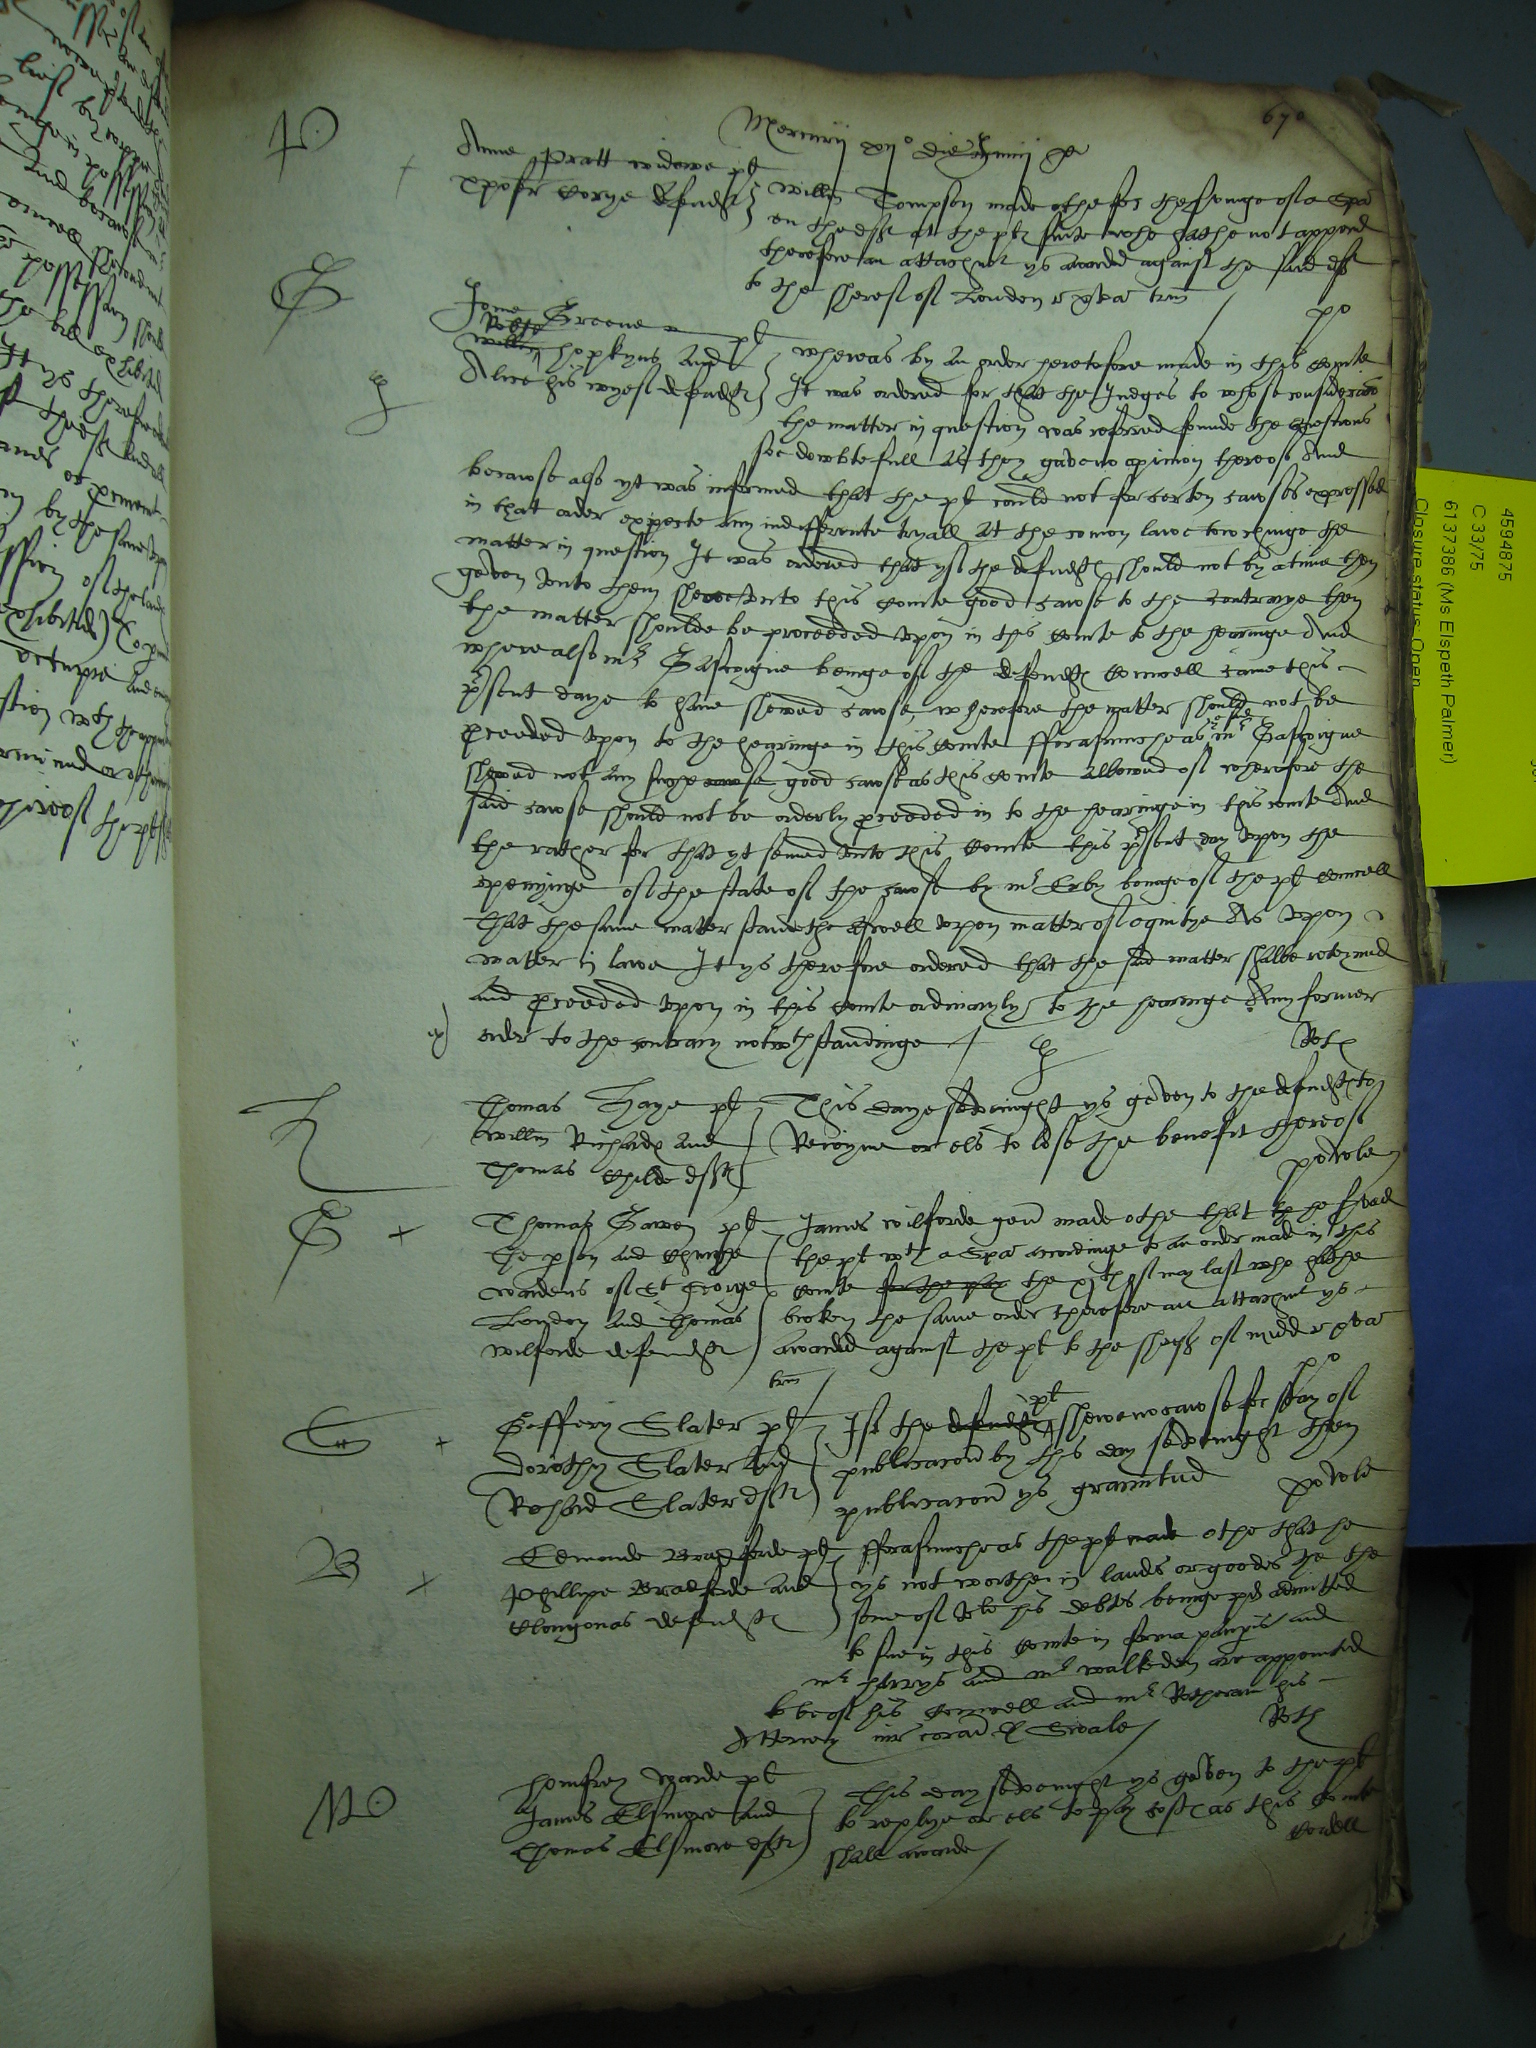 670
Mercurij xijo die Junij
P
Anne Pratt widowe pt
xpofer Corye defendt
willm Tompson made othe for the servinge of a spa
on the deft at the ptes sute who hathe not appered
therefore an attachmt ys awarded against the said deft
to the sheref of London trm
po
G
Jone Greene pt
willm Robte hopkyns And
Alice his wyef defendtes
wheras by an order heretofore made in this Courte
It was ordered for that the Judges to whose consideracon
the matter in question was referred founde the questions
soe doubtefull As they gave no opinion thereof And
because also yt was informed that the pt could not for certen causes expressed
in that order expecte any indifferente tryall At the comon lawe towchinge the
matter in question It was ordered that yf the defendtes should not by a time then
geven unto them shewe unto this Courte good cause to the contrarye then
the matter shoulde be proceeded upon in this Courte to the hearinge And
where also mr Gascoigne beinge of the defendtes Councell came this
psent daye to have shewed cause, wherefore the matter should not be
pceeded upon to the hearinge in this Courte fforasmuche as the mr Gascoigne
shewed not any suche cause good cause as this Courte Allowed of wherefore the
said cause should not be orderly pceeded in to the hearinge in this courte And
the rather for that yt semed unto this Courte this psent day upon the
openynge of the state of the cause by mr Erby beinge of the pt Councell
That the same matter standethe Aswell upon matter of equitye As upon
matter in lawe It ys therefore ordered that the said matter shalbe reteyned
and pceeded upon in this Courte ordinaryly to the hearinge Any former
order to the contrary notwthstandinge
Roth
H
Thomas Haye pt
willm Richard and
Thomas Childe deftes
This daye sevenight ys geven to the defendtes to
Reioyne or els to lose the benefit thereof
powle
G
Thomas Gawen pt
the pson and Churche
wardens of St George
London and Thomas
wilforde defendtes
James wilforde gen made othe that he served
the pt wth a spa accordinge to an order made in this
Courte for the pay the xjth of may last who hathe
broken the same order therefore an attachmt ys
awarded against the pt to the sherif of midd
trm
po
G
Geffery Slater pt
Dorothy Slater And
Richard Slater deftes
If the defendtes pt shewe no cause for stay of
publicacon by this day sevenight then
publicacon ys grauntud
powle
B
Edmonde Bradforde pt
Phillipe Bradforde And
defendtes
fforasmuche as the pt made othe that he
ys not worthe in lands or goodes the
some of vli his debts beinge pd admitted
to sue in this Courte in forma paupis and
mr harrys and mr walkeden are appointed
to be of his Councell and mr Rotheram his
Attorney Swale
Roth
W
homfrey warde pt
James Elsmore And
Thomas Elsmore deftes
This day sevenight ys geven to the pt
to replye or els to pay costes as this Courte
shall awarde
Cordell
4594875
C 33/75
6137386 (Ms Elspeth Palmer)
Closure status: Open